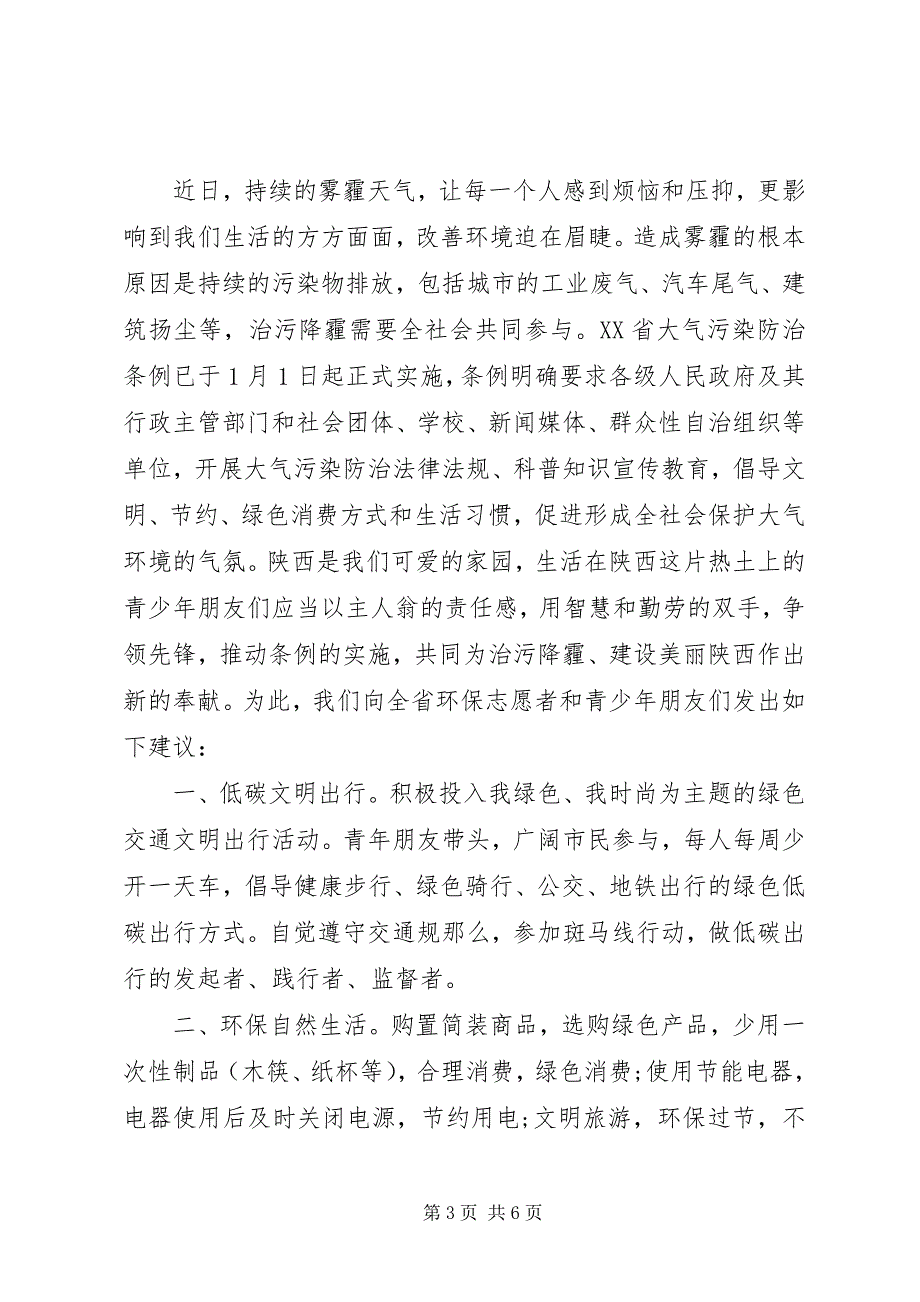 近日，持续的雾霾天气，让每一个人感到烦恼和压抑，更影
响到我们生活的方方面面，改善环境迫在眉睫。造成雾霾的根本
原因是持续的污染物排放，包括城市的工业废气、汽车尾气、建
筑扬尘等，治污降霾需要全社会共同参与。XX 省大气污染防治
条例已于 1 月 1 日起正式实施，条例明确要求各级人民政府及其
行政主管部门和社会团体、学校、新闻媒体、群众性自治组织等
单位，开展大气污染防治法律法规、科普知识宣传教育，倡导文
明、节约、绿色消费方式和生活习惯，促进形成全社会保护大气
环境的气氛。陕西是我们可爱的家园，生活在陕西这片热土上的
青少年朋友们应当以主人翁的责任感，用智慧和勤劳的双手，争
领先锋，推动条例的实施，共同为治污降霾、建设美丽陕西作出
新的奉献。为此，我们向全省环保志愿者和青少年朋友们发出如
下建议：
一、低碳文明出行。积极投入我绿色、我时尚为主题的绿色
交通文明出行活动。青年朋友带头，广阔市民参与，每人每周少
开一天车，倡导健康步行、绿色骑行、公交、地铁出行的绿色低
碳出行方式。自觉遵守交通规那么，参加斑马线行动，做低碳出
行的发起者、践行者、监督者。
二、环保自然生活。购置简装商品，选购绿色产品，少用一
次性制品（木筷、纸杯等），合理消费，绿色消费;使用节能电器，
电器使用后及时关闭电源，节约用电;文明旅游，环保过节，不
第 3 页 共 6 页